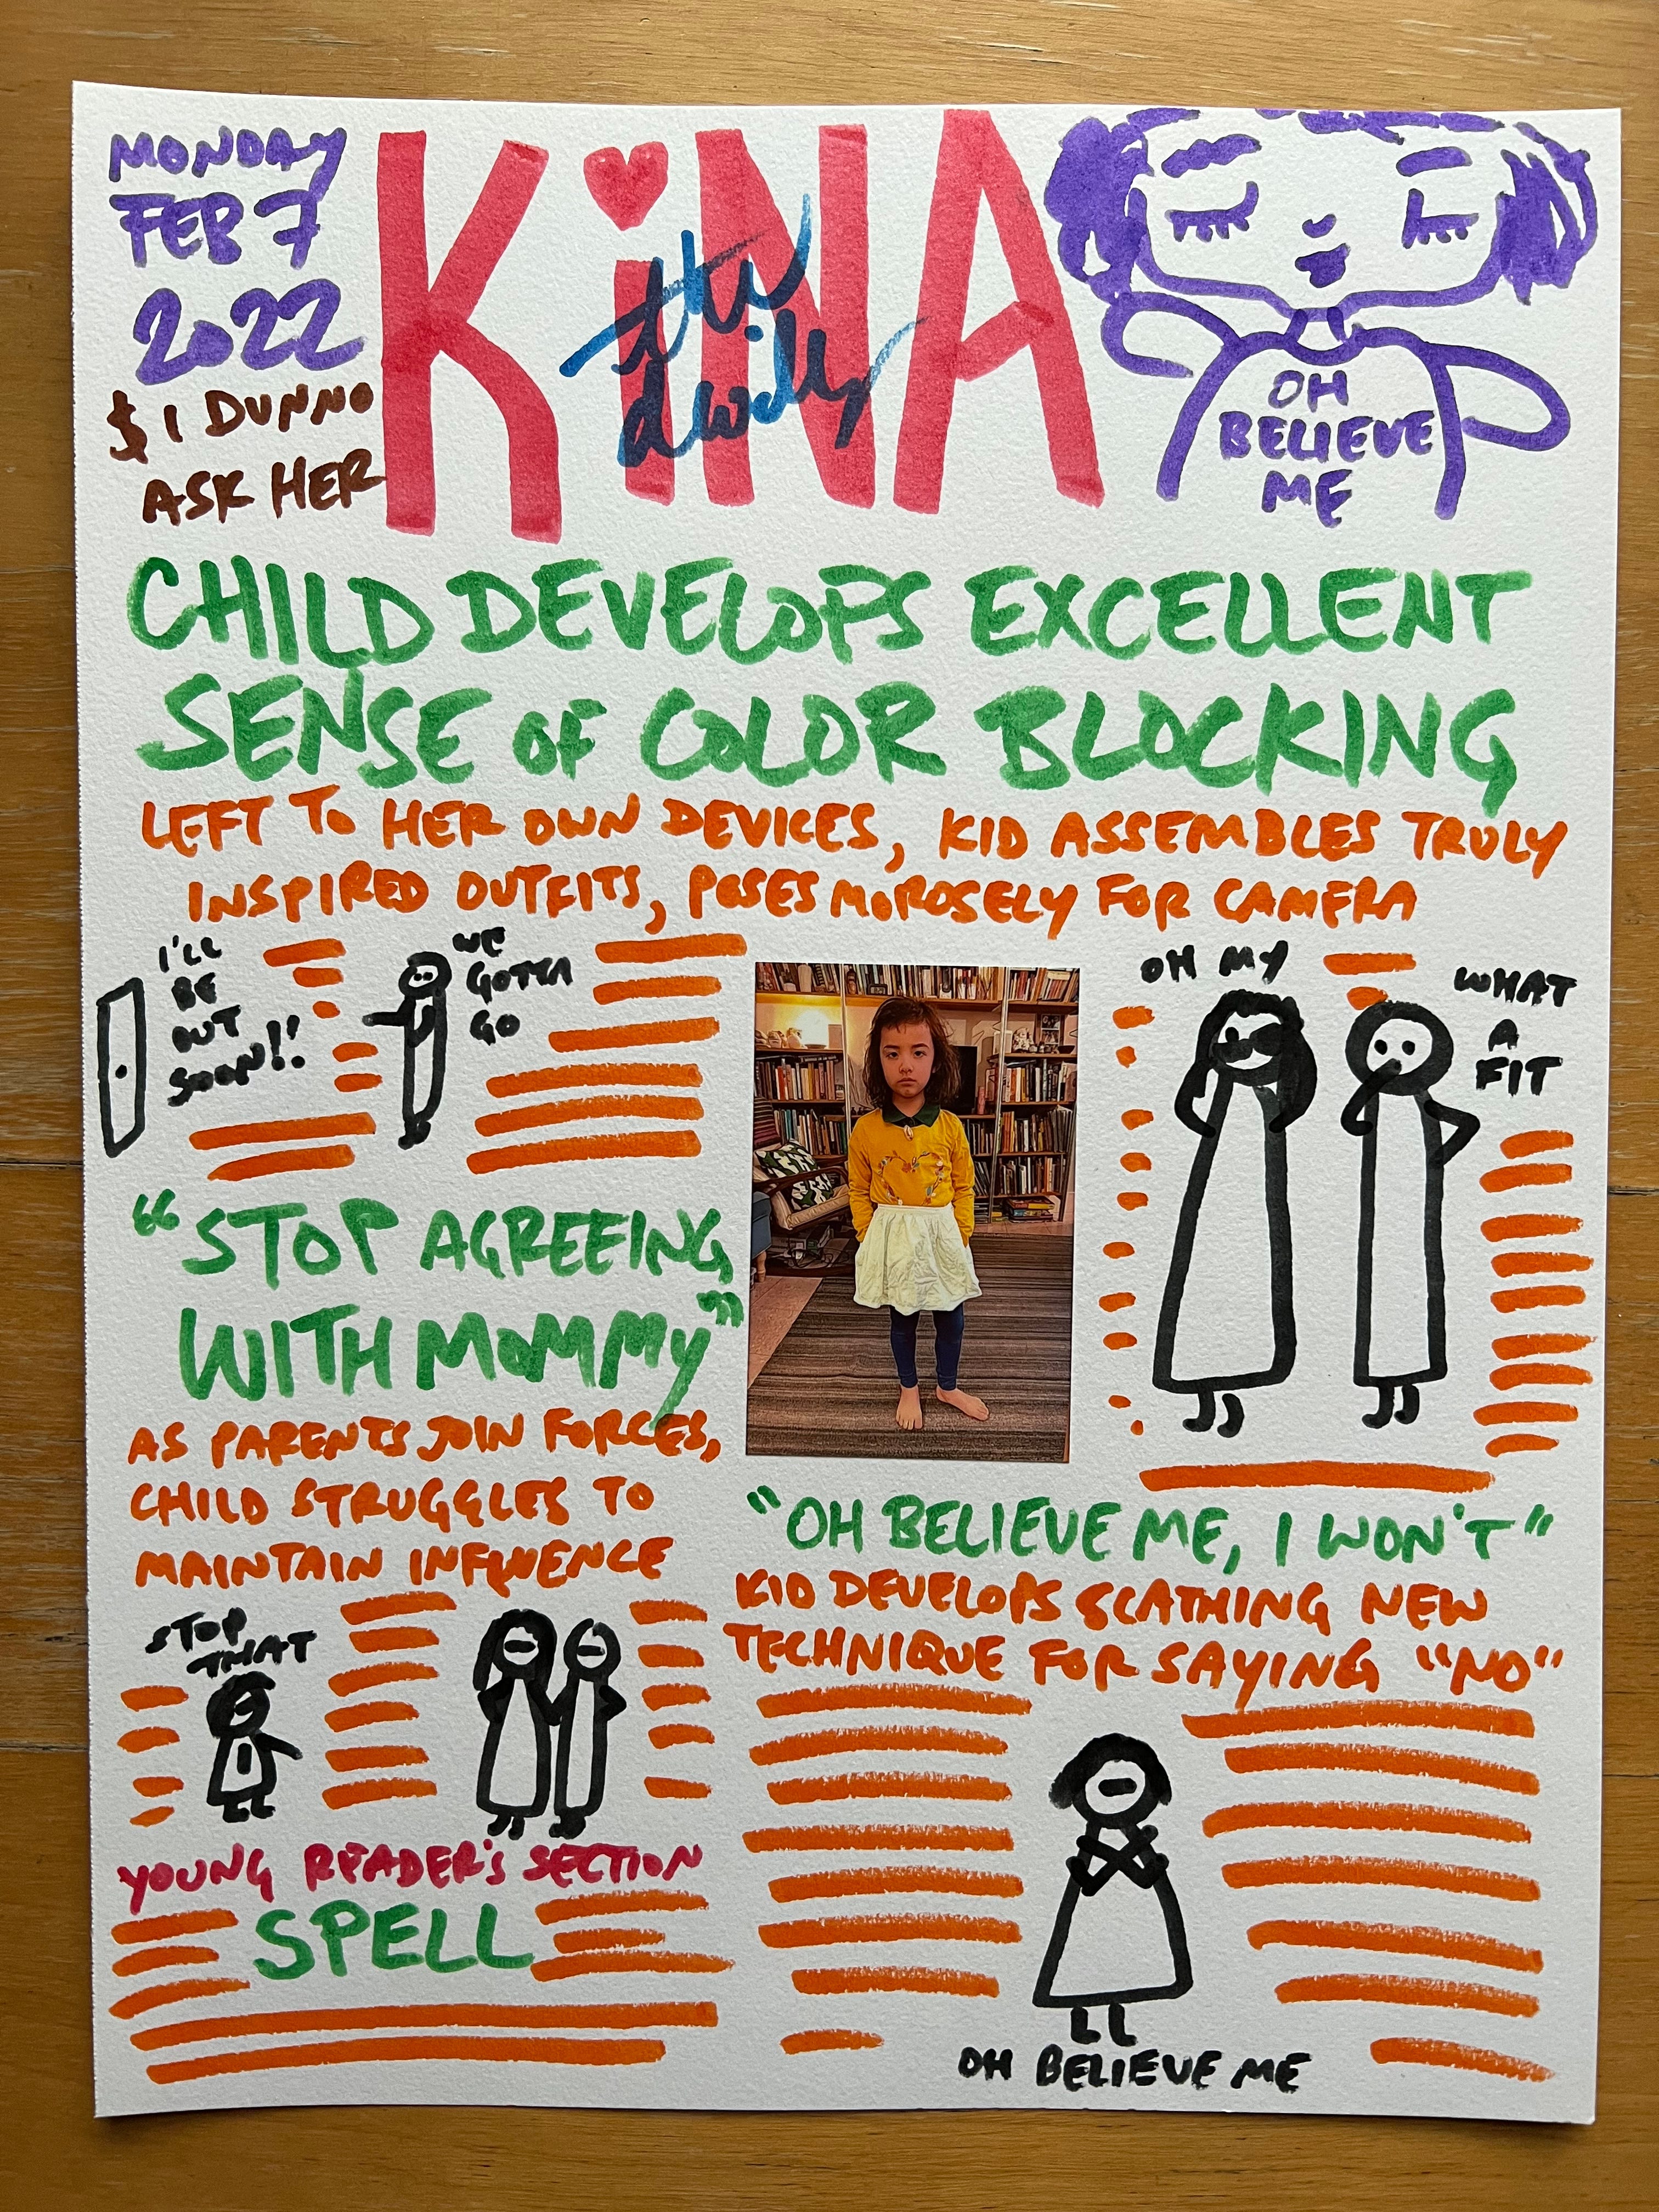 MONDAY
FEB 7
2022
$ I DUNNO
ASK HER
KiNA
the
daily
OH
BELIEVE
ME
CHILD DEVELOPS EXCELLENT
SENSE OF COLOR BLOCKING
LEFT TO HER OWN DEVICES, KID ASSEMBLES TRULY
INSPIRED OUTFITS, POSES MOROSELY FOR CAMERA
I'LL
BE
OUT
SOON!!
WE
GOTTA
GO
OH MY
WHAT
A
FIT
"STOP AGREEING
WITH MOMMY"
AS PARENTS JOIN FORCES,
CHILD STRUGGLES TO
MAINTAIN INFLUENCE
STOP
THAT
"OH BELIEVE ME, I WON'T"
KID DEVELOPS SCATHING NEW
TECHNIQUE FOR SAYING "NO"
OH BELIEVE ME
YOUNG READER'S SECTION
SPELL